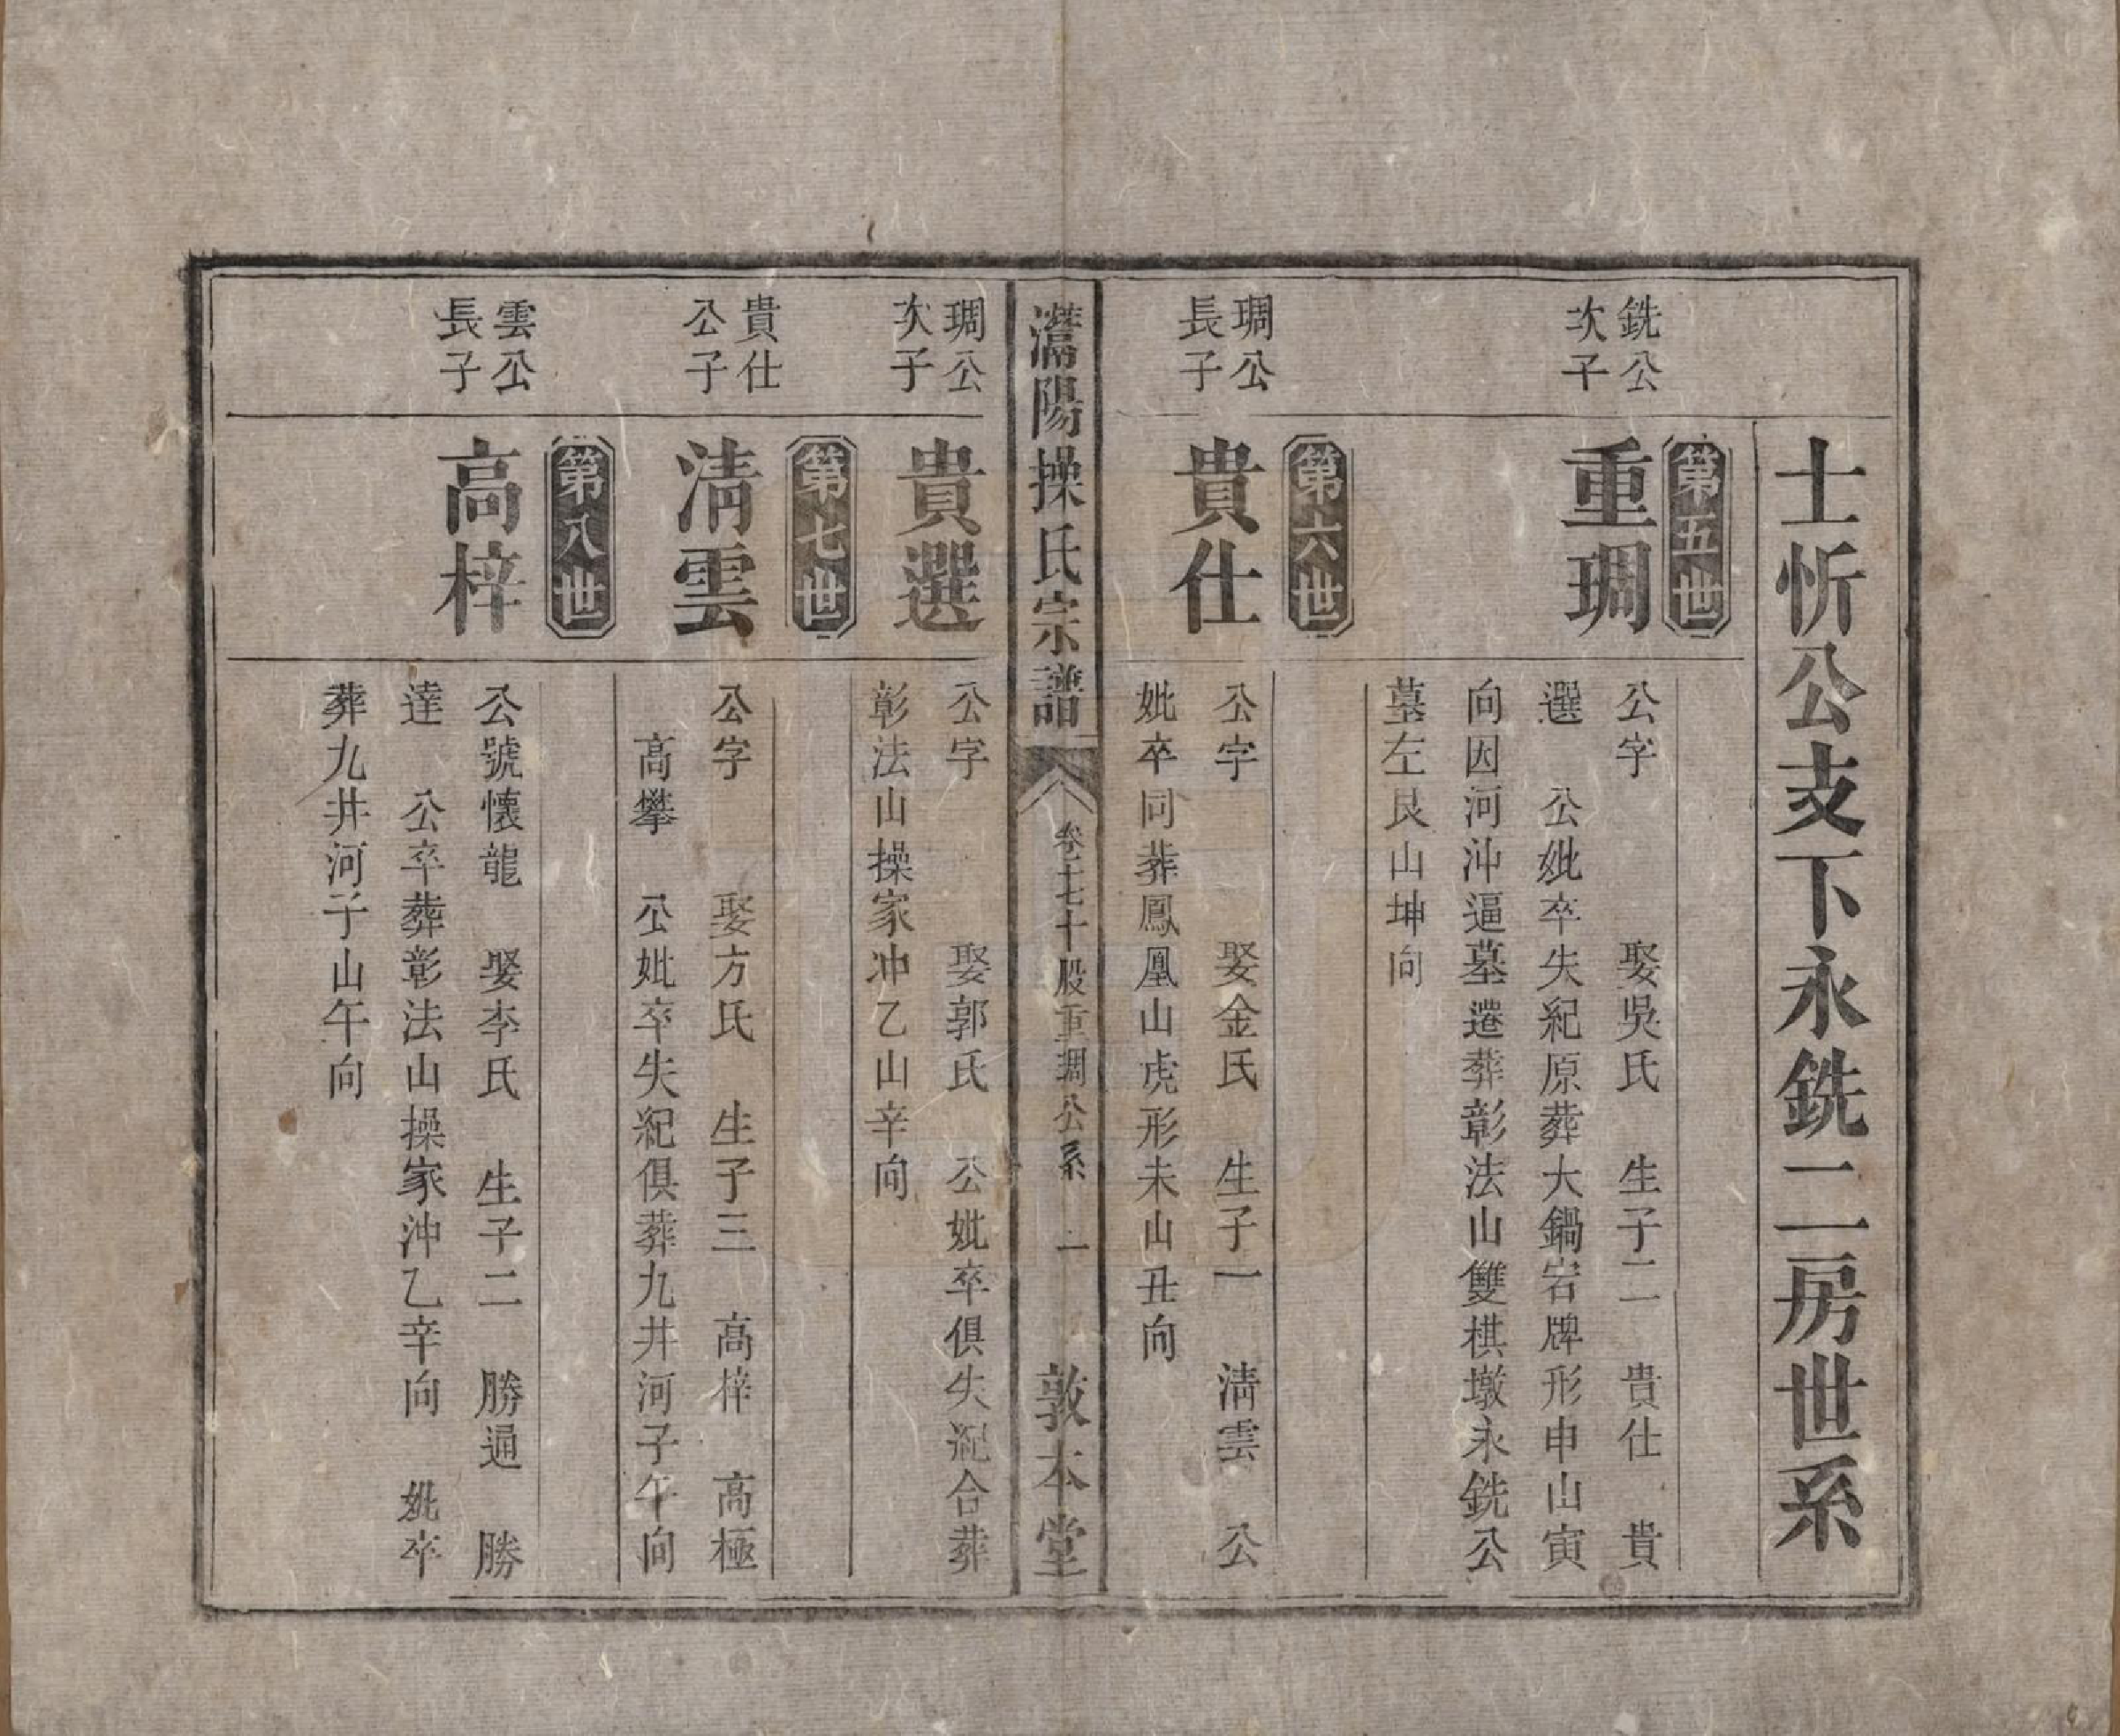 士忻公支下永銑二房世系
第五世
銑公
次子
重琱
公字 娶吳氏 生子二 貴仕 貴
選 公妣卒失紀原葬大鍋岩牌形申山寅
向因河沖逼墓遷葬彰法山雙棋墩永銑公
墓左艮山坤向
第六世
琱公
長子
貴仕
公字 娶金氏 生子一 淸雲 公
妣卒同葬鳳凰山虎形未山丑向
操氏宗譜
股重琱公系 二
敦本堂
琱公
次子
貴選
公字 娶郭氏 公妣卒俱失紀合葬
彰法山操家冲乙山辛向
第七世
貴仕
公子
淸雲
公字 娶方氏 生子三 高梓 高極
高攀 公妣卒失紀俱葬九井河子午向
第八世
雲公
長子
高梓
公號懷龍 娶李氏 生子二 勝通 勝
達 公卒葬彰法山操家沖乙辛向 妣卒
葬九井河子山午向